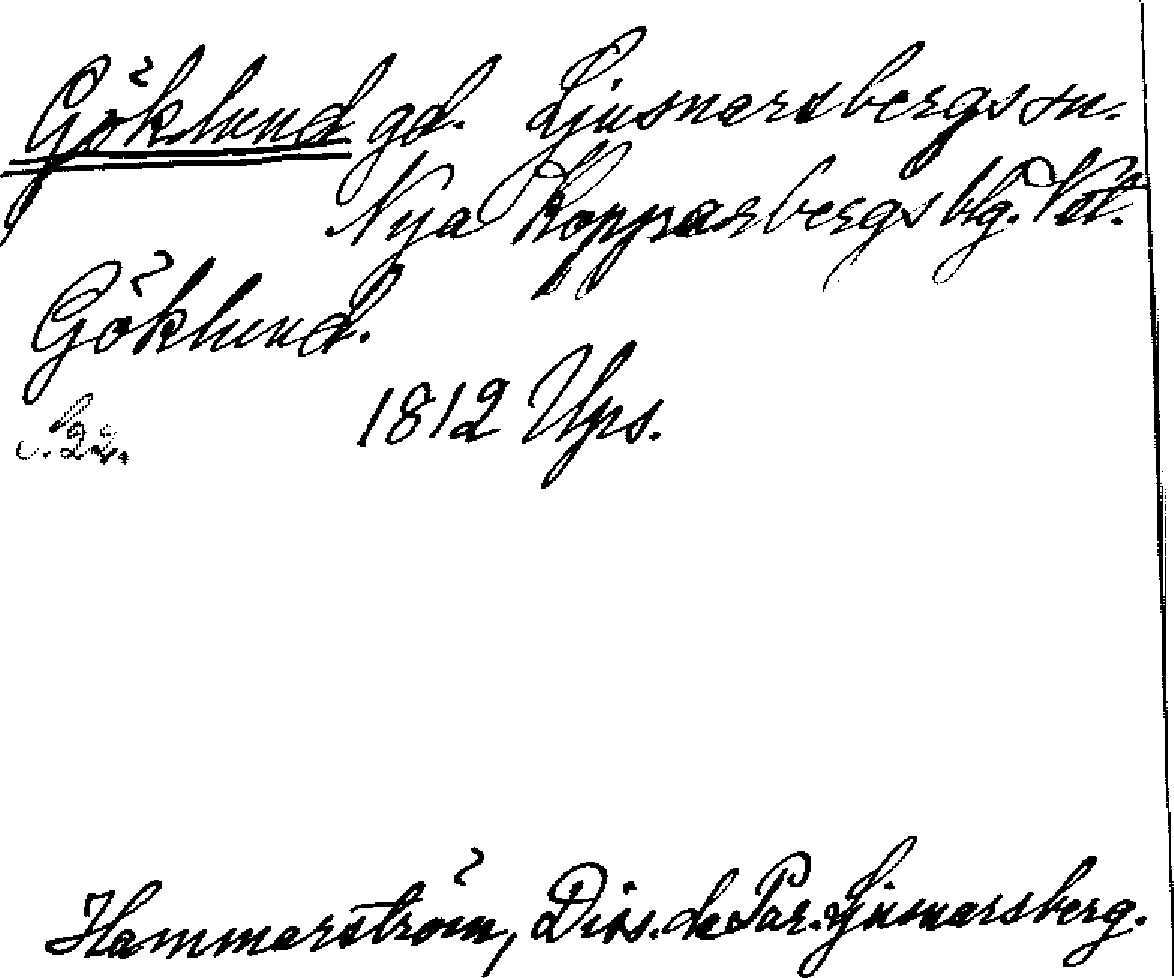 Göklund gd. Ljusnarsbergs sn.
Nya Kopparbergs blg. Vstm.
Göklund.
s. 22. 1812 Ups.
Hammarström, Diss. de Par. Ljusnarsberg.